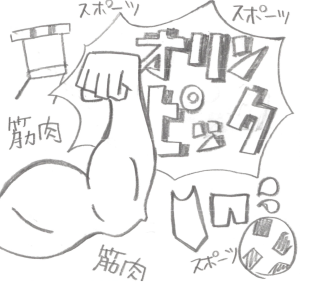 スポーツ
スポーツ
オリン
ピック
筋肉
筋肉
スポーツ